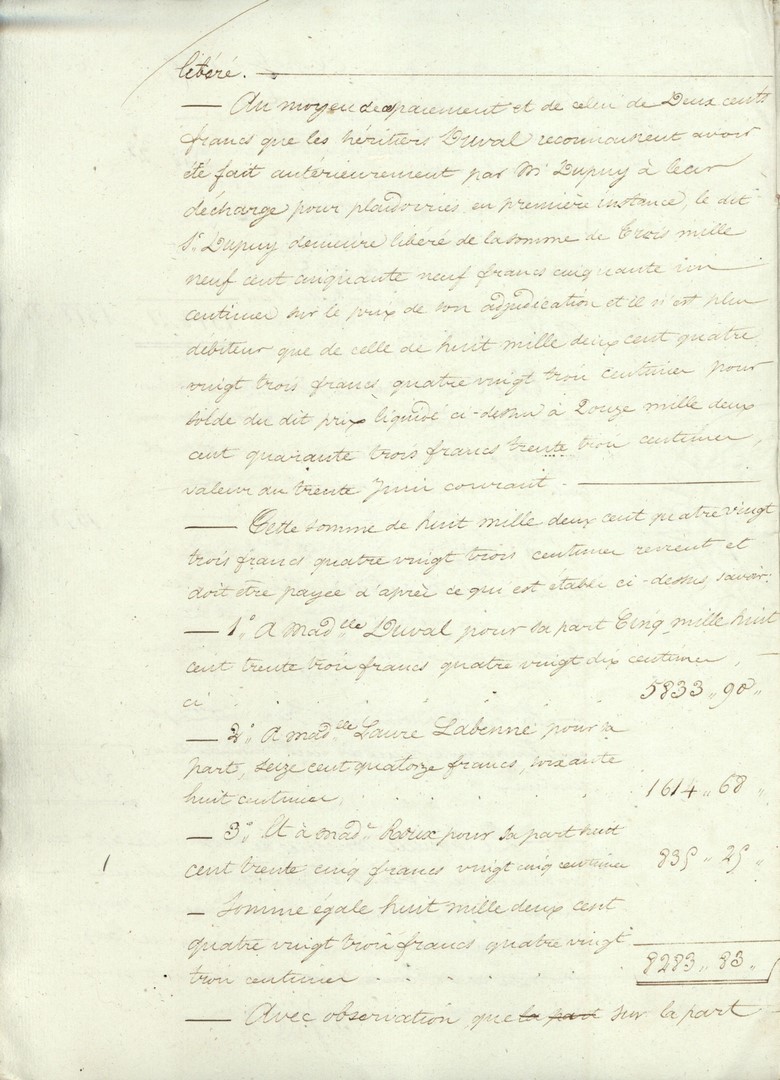 libéré. —
— Au moyen de ce paiement et de celui de Deux cents
francs que les héritiers Duval reconnaissent avoir
été fait antérieurement par Mr Dupuy à leur
décharge pour plaidoiries en première instance, le dit
Sr Dupuy demeure libéré de la somme de trois mille
neuf cent cinquante neuf francs cinquante
centimes sur le prix de son adjudication et il n'est plus
débiteur que de celle de huit mille deux cent quatre
vingt trois francs quatre vingt trois centimes pour
solde du dit prix liquidé ci-dessus à Douze mille deux
cent quarante trois francs trente trois centimes,
valeur au trente Juin courant. —
— Cette somme de huit mille deux cent quatre vingt
trois francs quatre vingt trois centimes revient et
doit être payée d'après ce qui est établi ci-dessus, savoir:
— 1° A madlle Duval pour sa part Cinq mille huit
cent trente trois francs quatre vingt dix centimes, —
ci . . . . . 5833 „ 90 „
— 2° A madlle Laure Labenne pour sa
part, seize cent quatorze francs, soixante
huit centimes, . . . 1614 „ 68 „
— 3° Et à made Roux pour sa part huit
cent trente cinq francs vingt cinq centimes 835 „ 25 „
— Somme égale huit mille deux cent
quatre vingt trois francs quatre vingt
trois centimes . . . . 8283 „ 83 „
— Avec observation que la part sur la part —